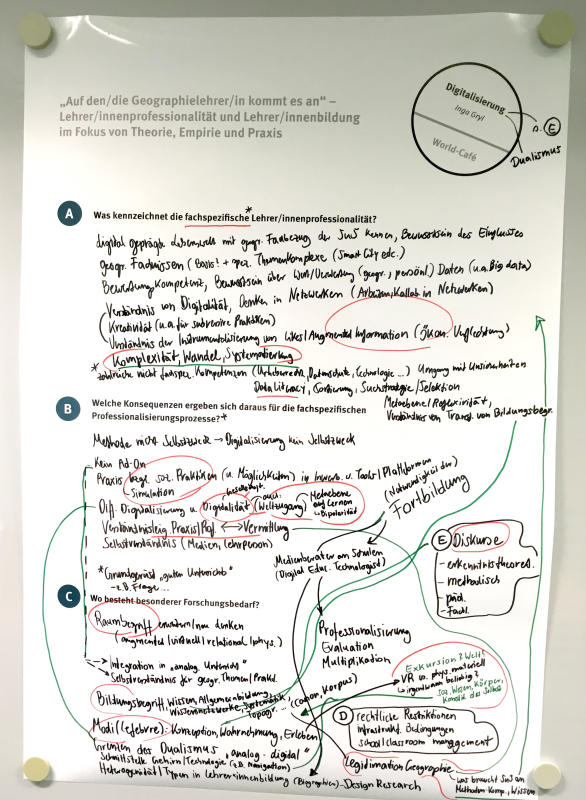 „Auf den/die Geographielehrer/in kommt es an“ –
Lehrer/innenprofessionalität und Lehrer/innenbildung
im Fokus von Theorie, Empirie und Praxis
Digitalisierung
Inga Gryl
World-Café
n. E
Dualismus
A Was kennzeichnet die fachspezifische* Lehrer/innenprofessionalität?
digital geprägte Lebenswelt mit geogr. Fachbezug der SuS kennen, Bewusstsein des Einflusses
geogr. Fachwissen (Basis! + spez. Themenkomplexe (Smart City etc.)
Bewertungskompetenz, Bewusstsein über Wert/ (geogr., persönl.) Daten (u.a. Big data)
Verständnis von Digitalität, Denken in Netzwerken (Arbeiten, Kollab. in Netzwerken)
Kreativität (u.a. für subversive Praktiken)
Verständnis der Instrumentalisierung von Likes/Augmented Information (ökon. Verflechtung)
Komplexität, Wandel, Systematisierung
* zahlreiche nicht fachspez. Kompetenzen (Urheberrecht, Datenschutz, Technologie ...) Umgang mit Unsicherheiten
Data Literacy, Suchstrategie/Selektion
Metaebene/Reflexivität,
Verständnis von Transf. von Bildungsbegr.
B Welche Konsequenzen ergeben sich daraus für die fachspezifischen
Professionalisierungsprozesse?*
Methode nicht Selbstzweck → Digitalisierung kein Selbstzweck
Kein Ad-On
Praxis bzgl. soz. Praktiken (u. Möglichkeiten) in u. Tools/Plattformen
- Simulation
(Notwendigkeit der)
Fortbildung
Gesellschaft.
Diff. Digitalisierung u Digitalität (auch: Weltzugang) Metaebene
auf Lernen
Dipolarität
Verständnis Praxis/Prof. ↔ Vermittlung
Selbstverständnis (Medien, Lehrperson)
Medienberater an Schulen
(Digital Educ. Technologist)
E Diskurse
- erkenntnistheoret.
- methodisch
- päd.
- Fachl.
* Grundgerüst „guten Unterrichts“
- z.B. Frage...
C Wo besteht besonderer Forschungsbedarf?
Raumbegriff erweitern/neu denken
(augmented/virtuell/relational/phys.)
Professionalisierung
Evaluation
Multiplikation
→ Integration in „analog. Unterricht“
→ Selbstverständnis für geogr. Themen/Prakt.
Exkursion? Welt!
VR vs. phys. materiell
↳ irgendwann beliebig?
soz. Wesen, Körper,
des Selbst
Bildungsbegriff, Wissen, Allgemeinbildung
Wissensnetzwerke, Systematik,
Topogr. (canon, korpus)
Modi (Lefebvre): Konzeption, Wahrnehmung, Erleben
D rechtliche Restriktionen
infrastrukt. Bedingungen
school/classroom management
Grenzen des Dualismus „analog - digital“
Schnittstelle Gehirn/Technologie (z.B. Navigation)
Heterogenität/Typen in Lehrer*innenbildung (Biographien) - Design Research
Legitimation Geographie
was braucht SuS an
Methoden-Komp., Wissen